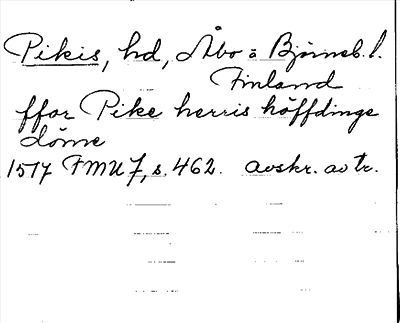 Pikis, hd, Åbo ö Björneb. l.
Finland
ffor Pike herris höffdinge
döme
1517 FMU 7, s. 462. avskr. av tr.